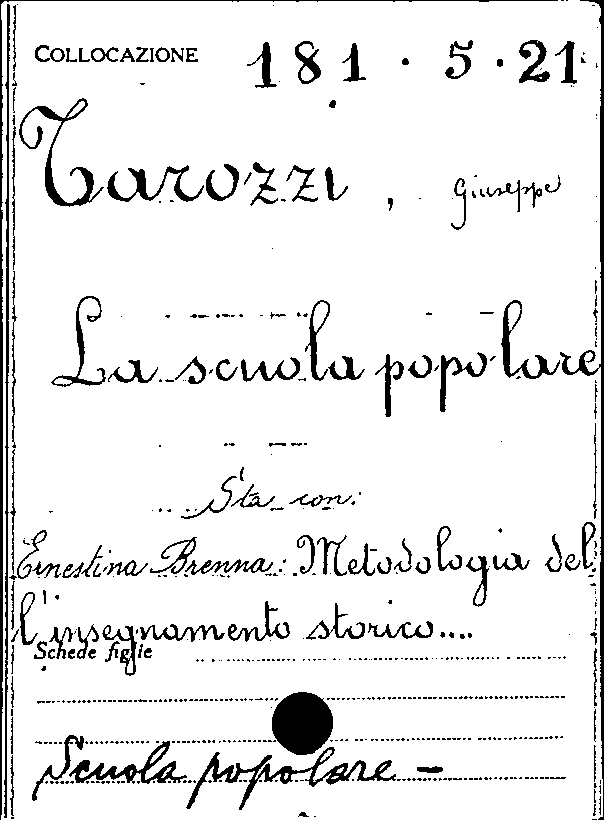 COLLOCAZIONE 181 . 5 . 21
Tarozzi, Giuseppe
La scuola popolare
Sta con:
Ernestina Brenna: Metodologia del
l'insegnamento storico....
Schede figlie
Scuola popolare -